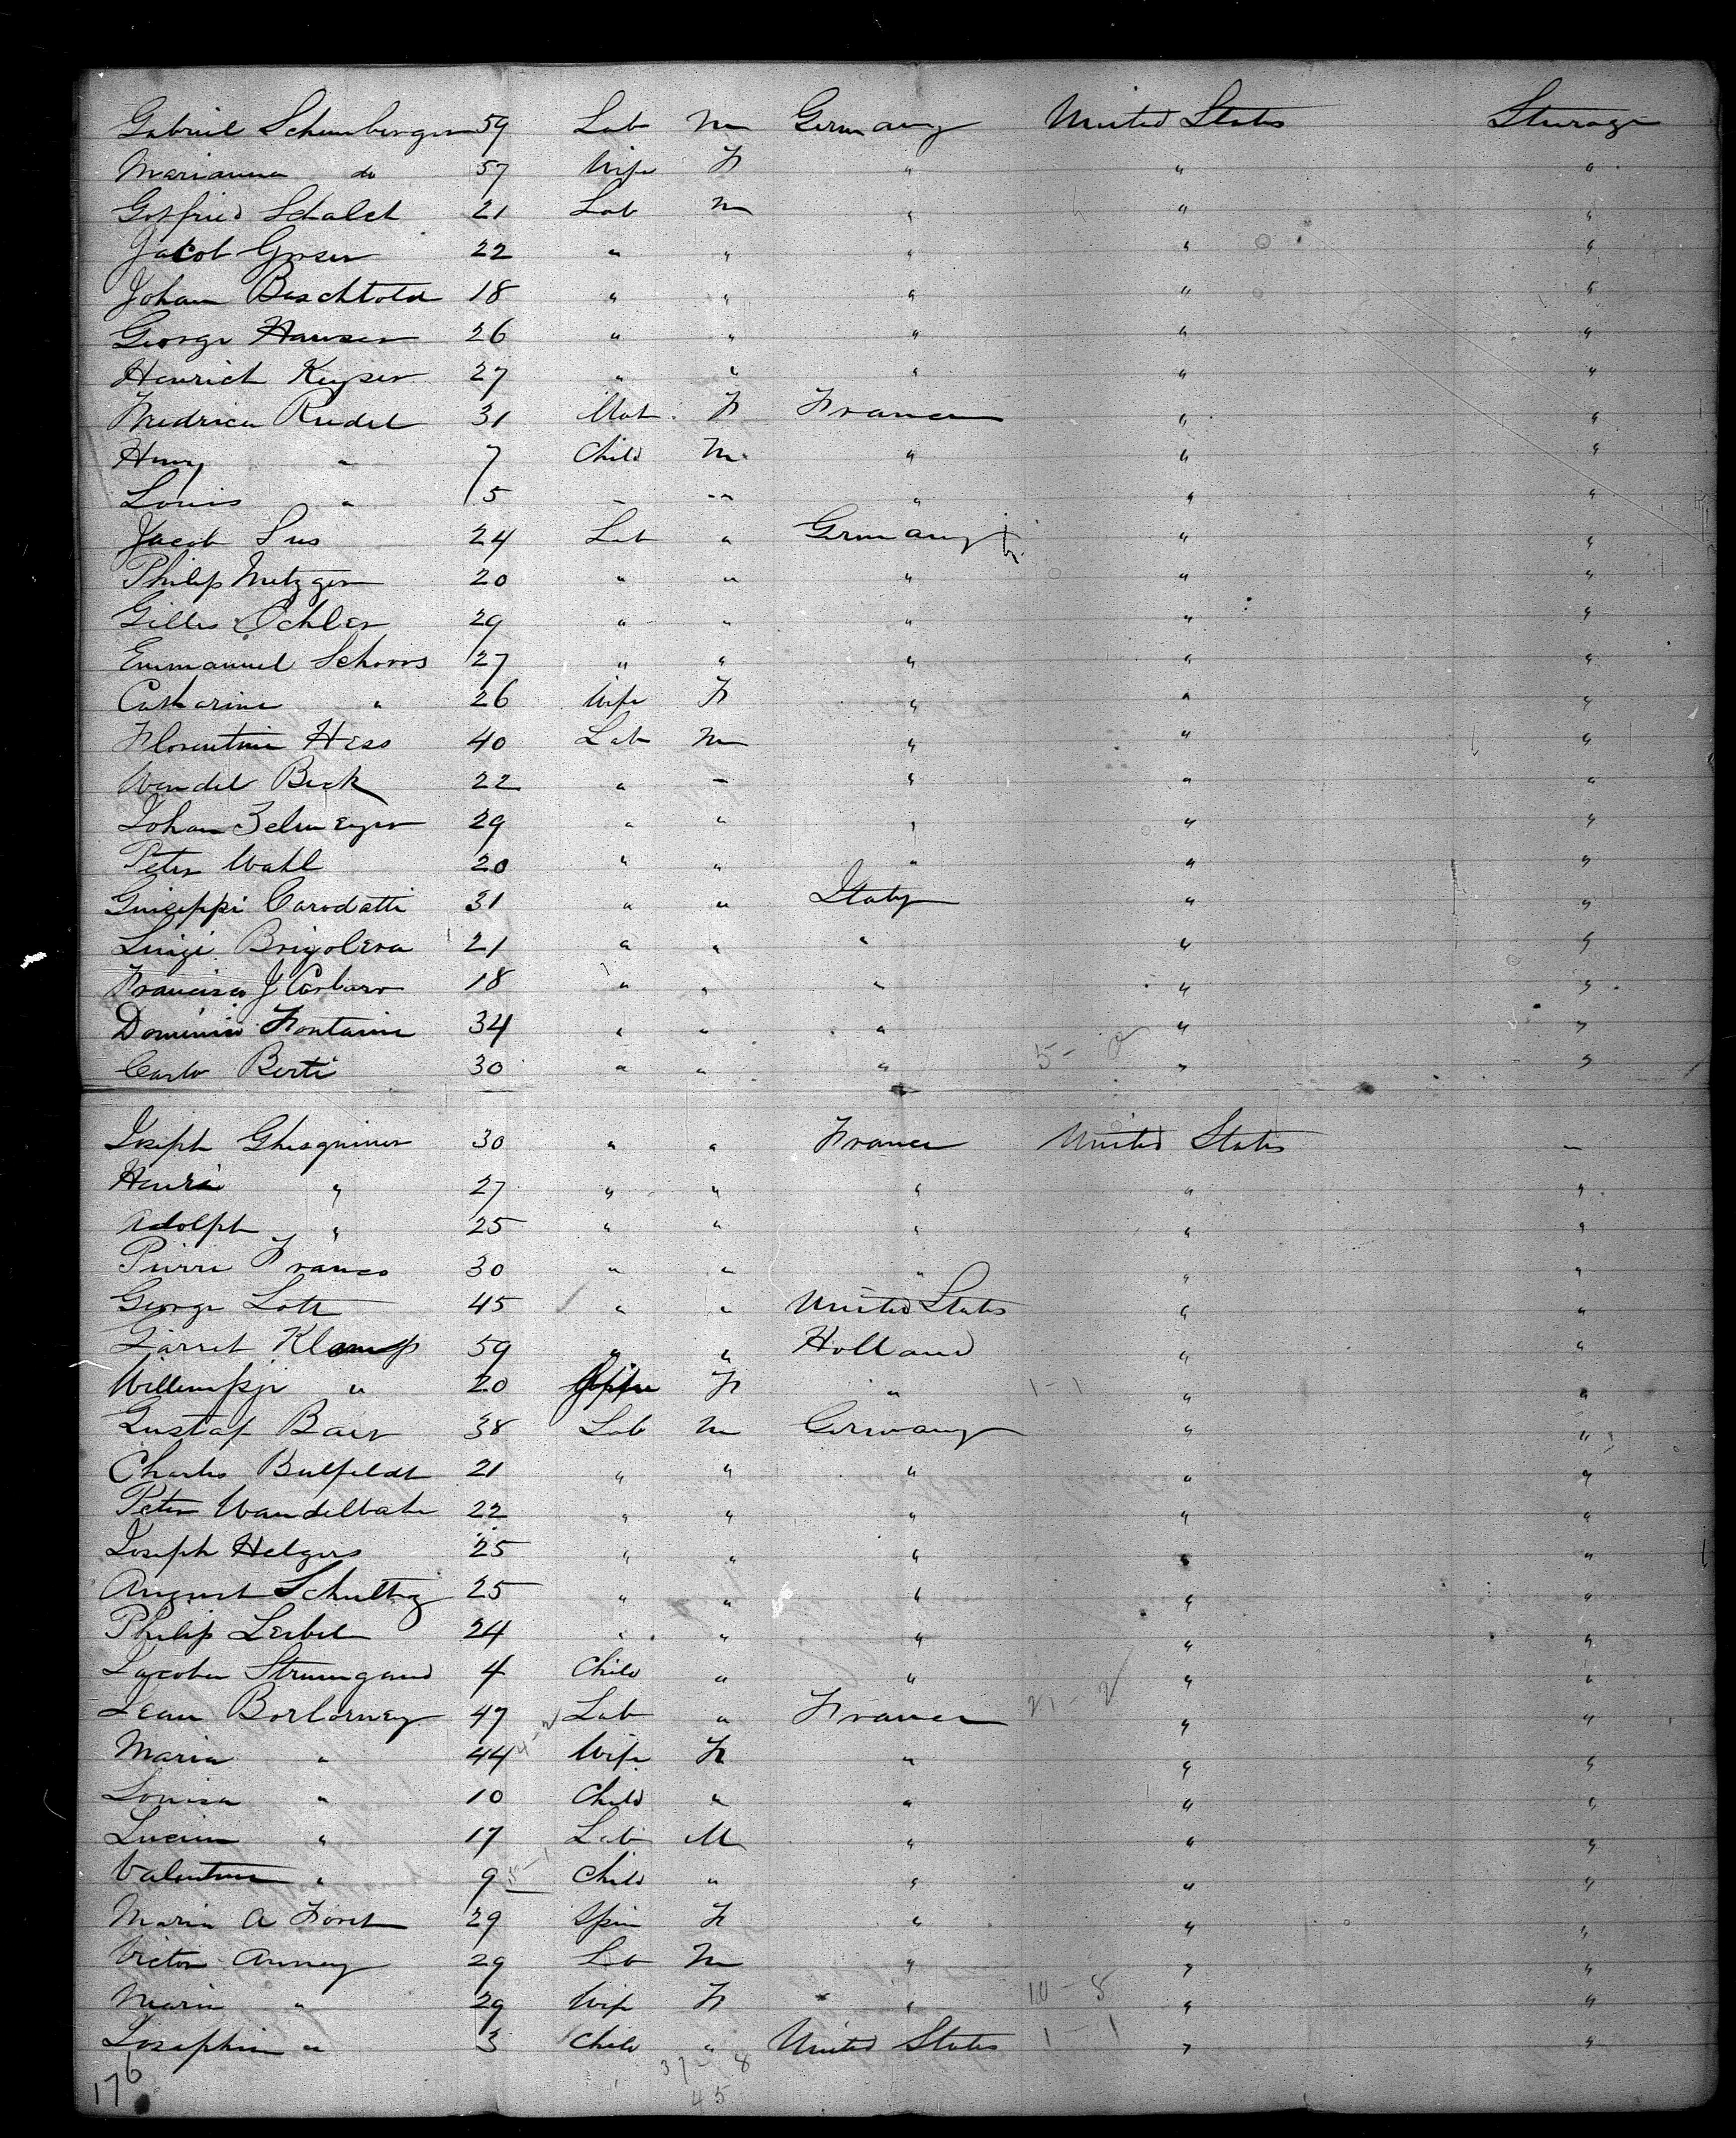 Gabriel Schemberger 59 Lab m Germany United States Sturage
Marianna do 57 Wife F " " "
Gotfried Schalet 21 Lab m " " "
Jacob Goser 22 " " " " "
Johan Baschtold 18 " " " " "
George Hauser 26 " " " " "
Henrich Kuyser 27 " " " " "
Fredrica Riedel 31 Mat. F France " "
Henry " 7 Child M " " "
Louis " 5 " " " " "
Jacob Sus 24 Lab " Germany " "
Philip Metzger 20 " " " " "
Gilles Ochler 29 " " " " "
Emmanuel Schoros 27 " " " " "
Catharine " 26 Wife F " " "
Florentine Hess 40 Lab m " " "
Wendel Beck 22 " " " " "
Johan Zelmeyer 29 " " " " "
Peter Wahl 20 " " " " "
Guiseppi Carodatti 31 " " Italy " "
Luigi Brigolera 21 " " " " "
Francisco J Carbaro 18 " " " " "
Dominic Fontaine 34 " " " " "
Carlo Berti 30 " " " 5 - 0 " "
Joseph Ghesquiner 30 " " France United States "
Henri " 27 " " " " "
Adolph " 25 " " " " "
Pierre Franco 30 " " " " "
George Lott 45 " " United States " "
Garret Klamp 59 " " Holland " "
Willempje " 20 F " 1-1 " "
Gustaf Baer 38 Lab m Germany " "
Charles Bulfeldt 21 " " " " "
Peter Wandelbake 22 " " " " "
Joseph Helgers 25 " " " " "
August Schultz 25 " " " " "
Philip Leibel 24 " " " " "
Jacober Strumgand 4 Child " " " "
Jean Borlorney 47 Lab " France 21-2 " "
Maria " 44 4-2 Wife F " " "
Louisa " 10 Child " " " "
Lucien " 17 Lab M " " "
Valentine " 9 5-1 Child " " " "
Maria A Foret 29 Spin F " " "
Victor Anney 29 Lab m " " "
Maria " 29 Wife F " 10-8 " "
Josephine " 3 Child " United States 1-1 " "
37-8
176 45